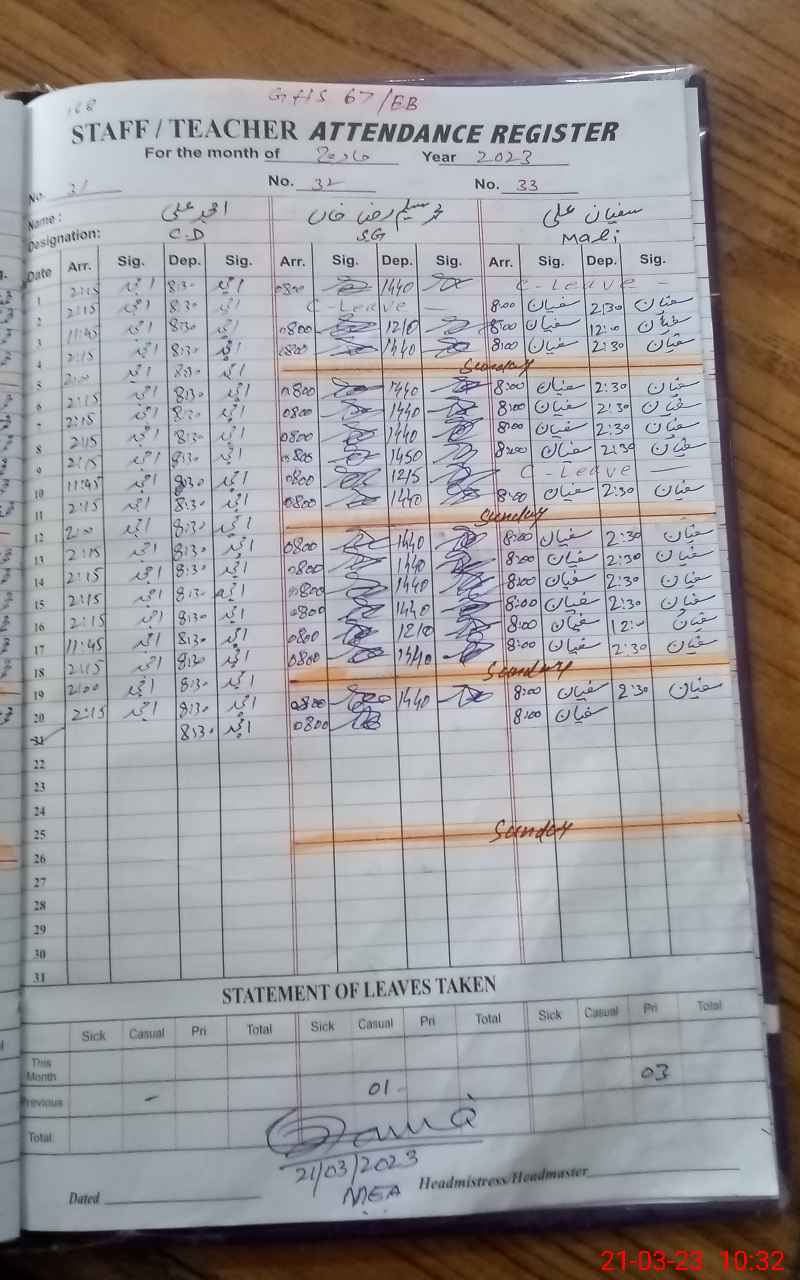 GHS 67/EB
STAFF / TEACHER ATTENDANCE REGISTER
For the month of مارچ Year 2023
No. 31 No. 32 No. 33
Name : امجد علی محمد سلیم رضا خاں سفیان علی
Designation: C.D S.G Mali
Date Arr. Sig. Dep. Sig. Arr. Sig. Dep. Sig. Arr. Sig. Dep. Sig.
1 2:15 امجد 8:30 امجد 0800 1440 C-Leave
2 2:15 امجد 8:30 امجد C-Leave 8:00 سفیان 2:30 سفیان
3 11:45 امجد 8:30 امجد 0800 1210 8:00 سفیان 12:00 سفیان
4 2:15 امجد 8:30 امجد 0800 1440 8:00 سفیان 2:30 سفیان
5 2:00 امجد 8:30 امجد Sunday
6 2:15 امجد 8:30 امجد 0800 1440 8:00 سفیان 2:30 سفیان
7 2:15 امجد 8:30 امجد 0800 1440 8:00 سفیان 2:30 سفیان
8 2:15 امجد 8:30 امجد 0800 1440 8:00 سفیان 2:30 سفیان
9 2:15 امجد 8:30 امجد 0800 1450 8:00 سفیان 2:30 سفیان
10 11:45 امجد 8:30 امجد 0800 1215 C-Leave
11 2:15 امجد 8:30 امجد 0800 1440 8:00 سفیان 2:30 سفیان
12 2:00 امجد 8:30 امجد Sunday
13 2:15 امجد 8:30 امجد 0800 1440 8:00 سفیان 2:30 سفیان
14 2:15 امجد 8:30 امجد 0800 1440 8:00 سفیان 2:30 سفیان
15 2:15 امجد 8:30 امجد 0800 1440 8:00 سفیان 2:30 سفیان
16 2:15 امجد 8:30 امجد 0800 1440 8:00 سفیان 2:30 سفیان
17 11:45 امجد 8:30 امجد 0800 1210 8:00 سفیان 12:00 سفیان
18 2:15 امجد 8:30 امجد 0800 1440 8:00 سفیان 2:30 سفیان
19 2:00 امجد 8:30 امجد Sunday
20 2:15 امجد 8:30 امجد 0800 1440 8:00 سفیان 2:30 سفیان
21 8:30 امجد 0800 8:00 سفیان
22
23
24
25 Sunday
26
27
28
29
30
31
STATEMENT OF LEAVES TAKEN
Sick Casual Pri Total Sick Casual Pri Total Sick Casual Pri Total
This Month 03
Previous - 01 -
Total:
21/03/2023
MEA
Dated Headmistress/Headmaster
21-03-23 10:32